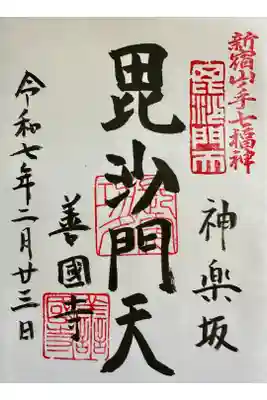 新宿山ノ手七福神
神楽坂
毘沙門天
善國寺
令和七年二月廿三日